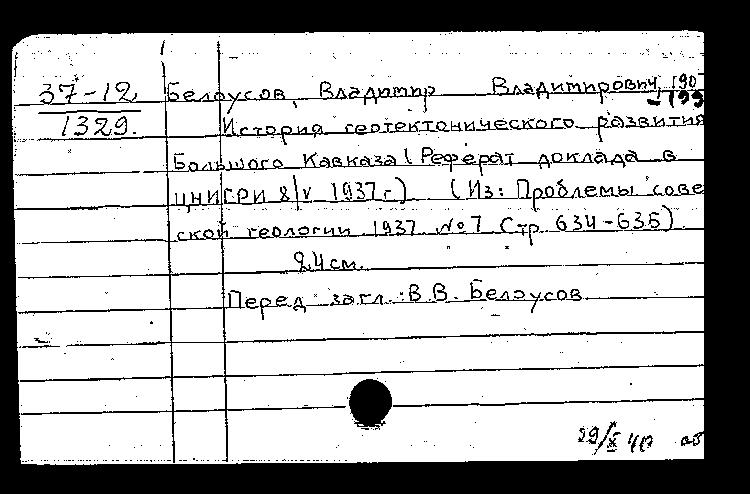 37-12
1329.
Белоусов, Владимир Владимирович, 190
История геотектонического развития
Большого Кавказа (Реферат доклада в
ЦНИГРИ 8/V 1937г.) (Из: Проблемы сове
ской геологии 1937 №7 Стр. 634-636)
24 см.
Перед загл.: В.В. Белоусов
29/X 40